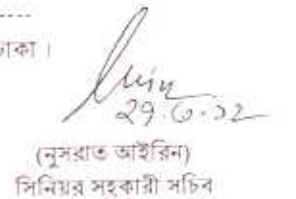 ঢাকা।
২৭.৩.১২
(নুসরাত আইরিন)
সিনিয়র সহকারী সচিব